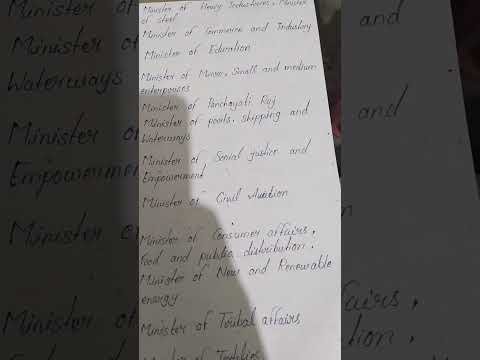 Minister of Heavy Industries, Minister
of steel
Minister of Commerce and Industry
Minister of Education
Minister of Micro, Small and medium
enterprises
Minister of Panchayati Raj
Minister of ports, shipping and
Waterways
Minister of Social justice and
Empowerment
Minister of Civil Aviation
Minister of Consumer affairs,
Food and public distribution.
Minister of New and Renewable
energy
Minister of Tribal affairs
Minister of Textiles